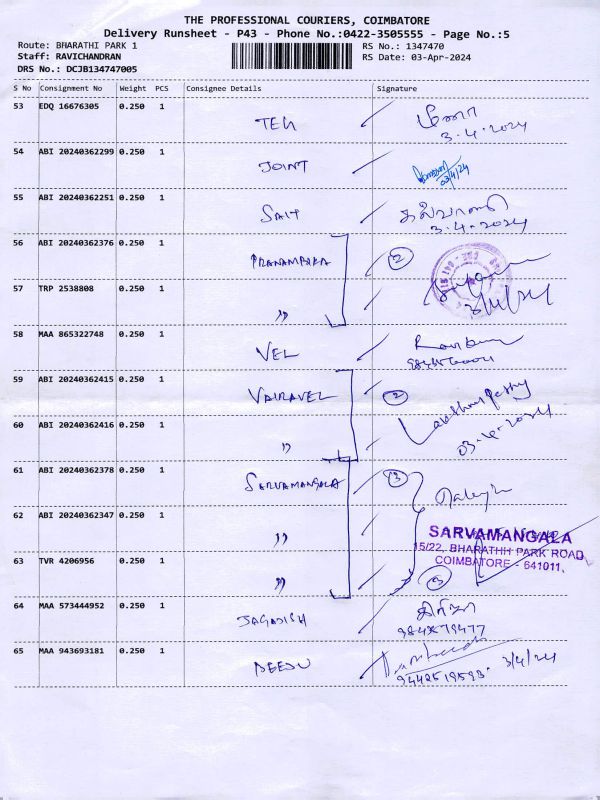 THE PROFESSIONAL COURIERS, COIMBATORE
Delivery Runsheet - P43 - Phone No.:0422-3505555 - Page No.:5
Route: BHARATHI PARK 1 RS No.: 1347470
Staff: RAVICHANDRAN RS Date: 03-Apr-2024
DRS No.: DCJB134747005
S No Consignment No Weight PCS Consignee Details Signature
53 EDQ 16676305 0.250 1
3.4.2024
54 ABI 20240362299 0.250 1 JOINT
03/4/24
55 ABI 20240362251 0.250 1 SAIT
3.4.2024
56 ABI 20240362376 0.250 1 PRANAMBIKA 2
57 TRP 2538808 0.250 1 "
3/4/24
58 MAA 865322748 0.250 1 VEL
59 ABI 20240362415 0.250 1 VAIRAVEL 2
60 ABI 20240362416 0.250 1 "
03.4.2024
61 ABI 20240362378 0.250 1 SARVAMANGALA 3
62 ABI 20240362347 0.250 1 "
SARVAMANGALA
15/22, BHARATHH PARK ROAD,
COIMBATORE - 641011.
63 TVR 4206956 0.250 1 " 3
64 MAA 573444952 0.250 1 JAGADISH
65 MAA 943693181 0.250 1 3/4/24